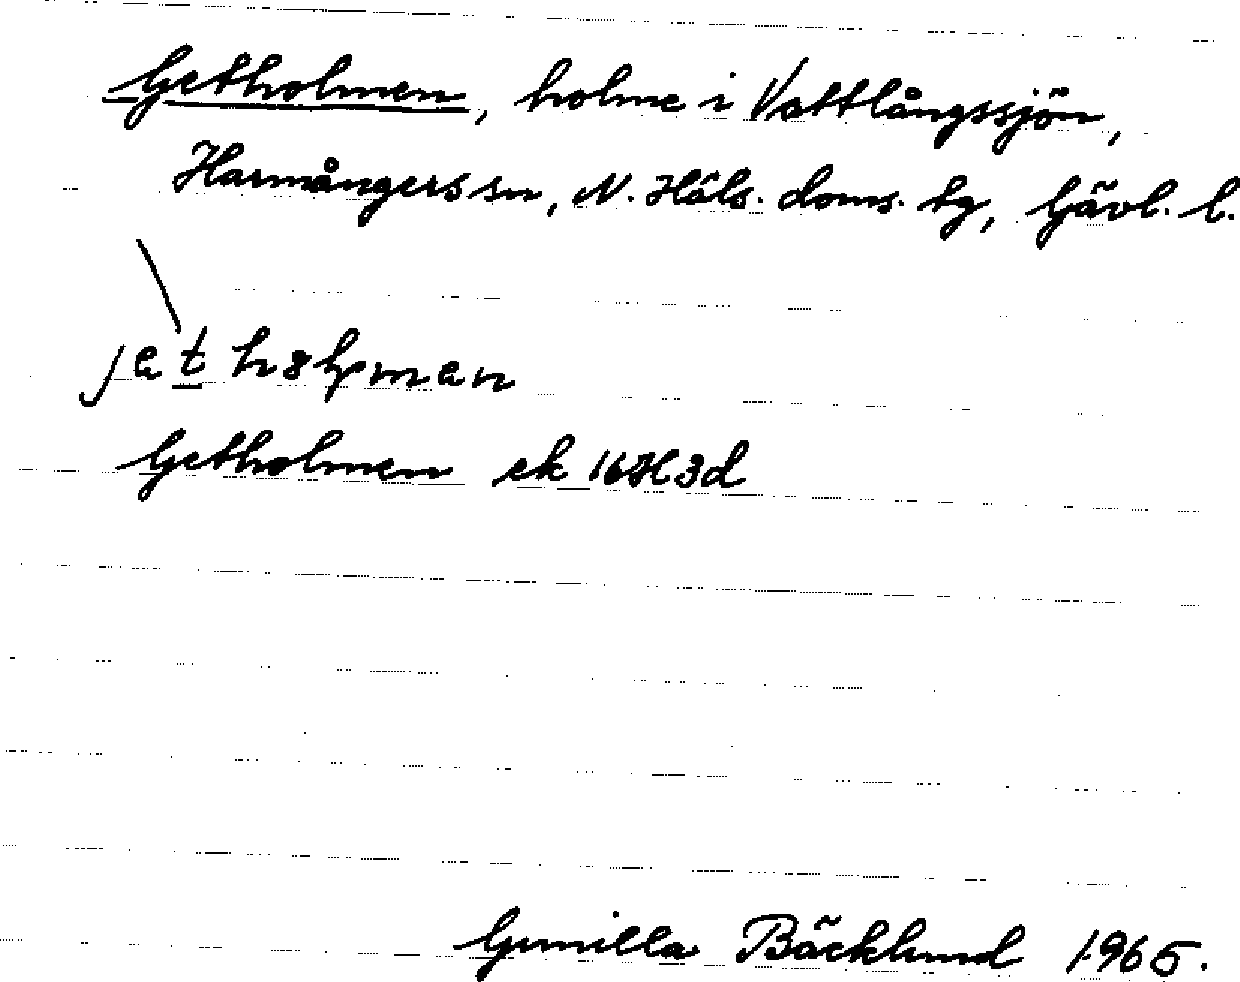 Getholmen, holme i Vattlångssjön,
Harmångers sn, N. Häls. doms. tg, Gävl. l.
\
Getholmen ek 16H3d
Gunilla Bäcklund 1965.